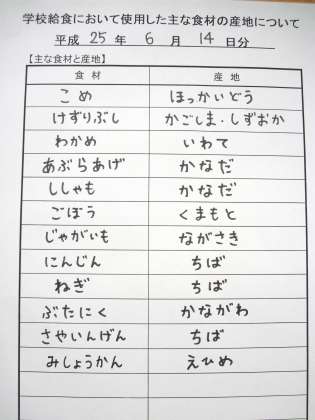 学校給食において使用した主な食材の産地について
平成 25 年 6 月 14 日分
【主な食材と産地】
食材 産地
こめ ほっかいどう
けずりぶし かごしま・しずおか
わかめ いわて
あぶらあげ かなだ
ししゃも かなだ
ごぼう くまもと
じゃがいも ながさき
にんじん ちば
ねぎ ちば
ぶたにく かながわ
さやいんげん ちば
みしょうかん えひめ